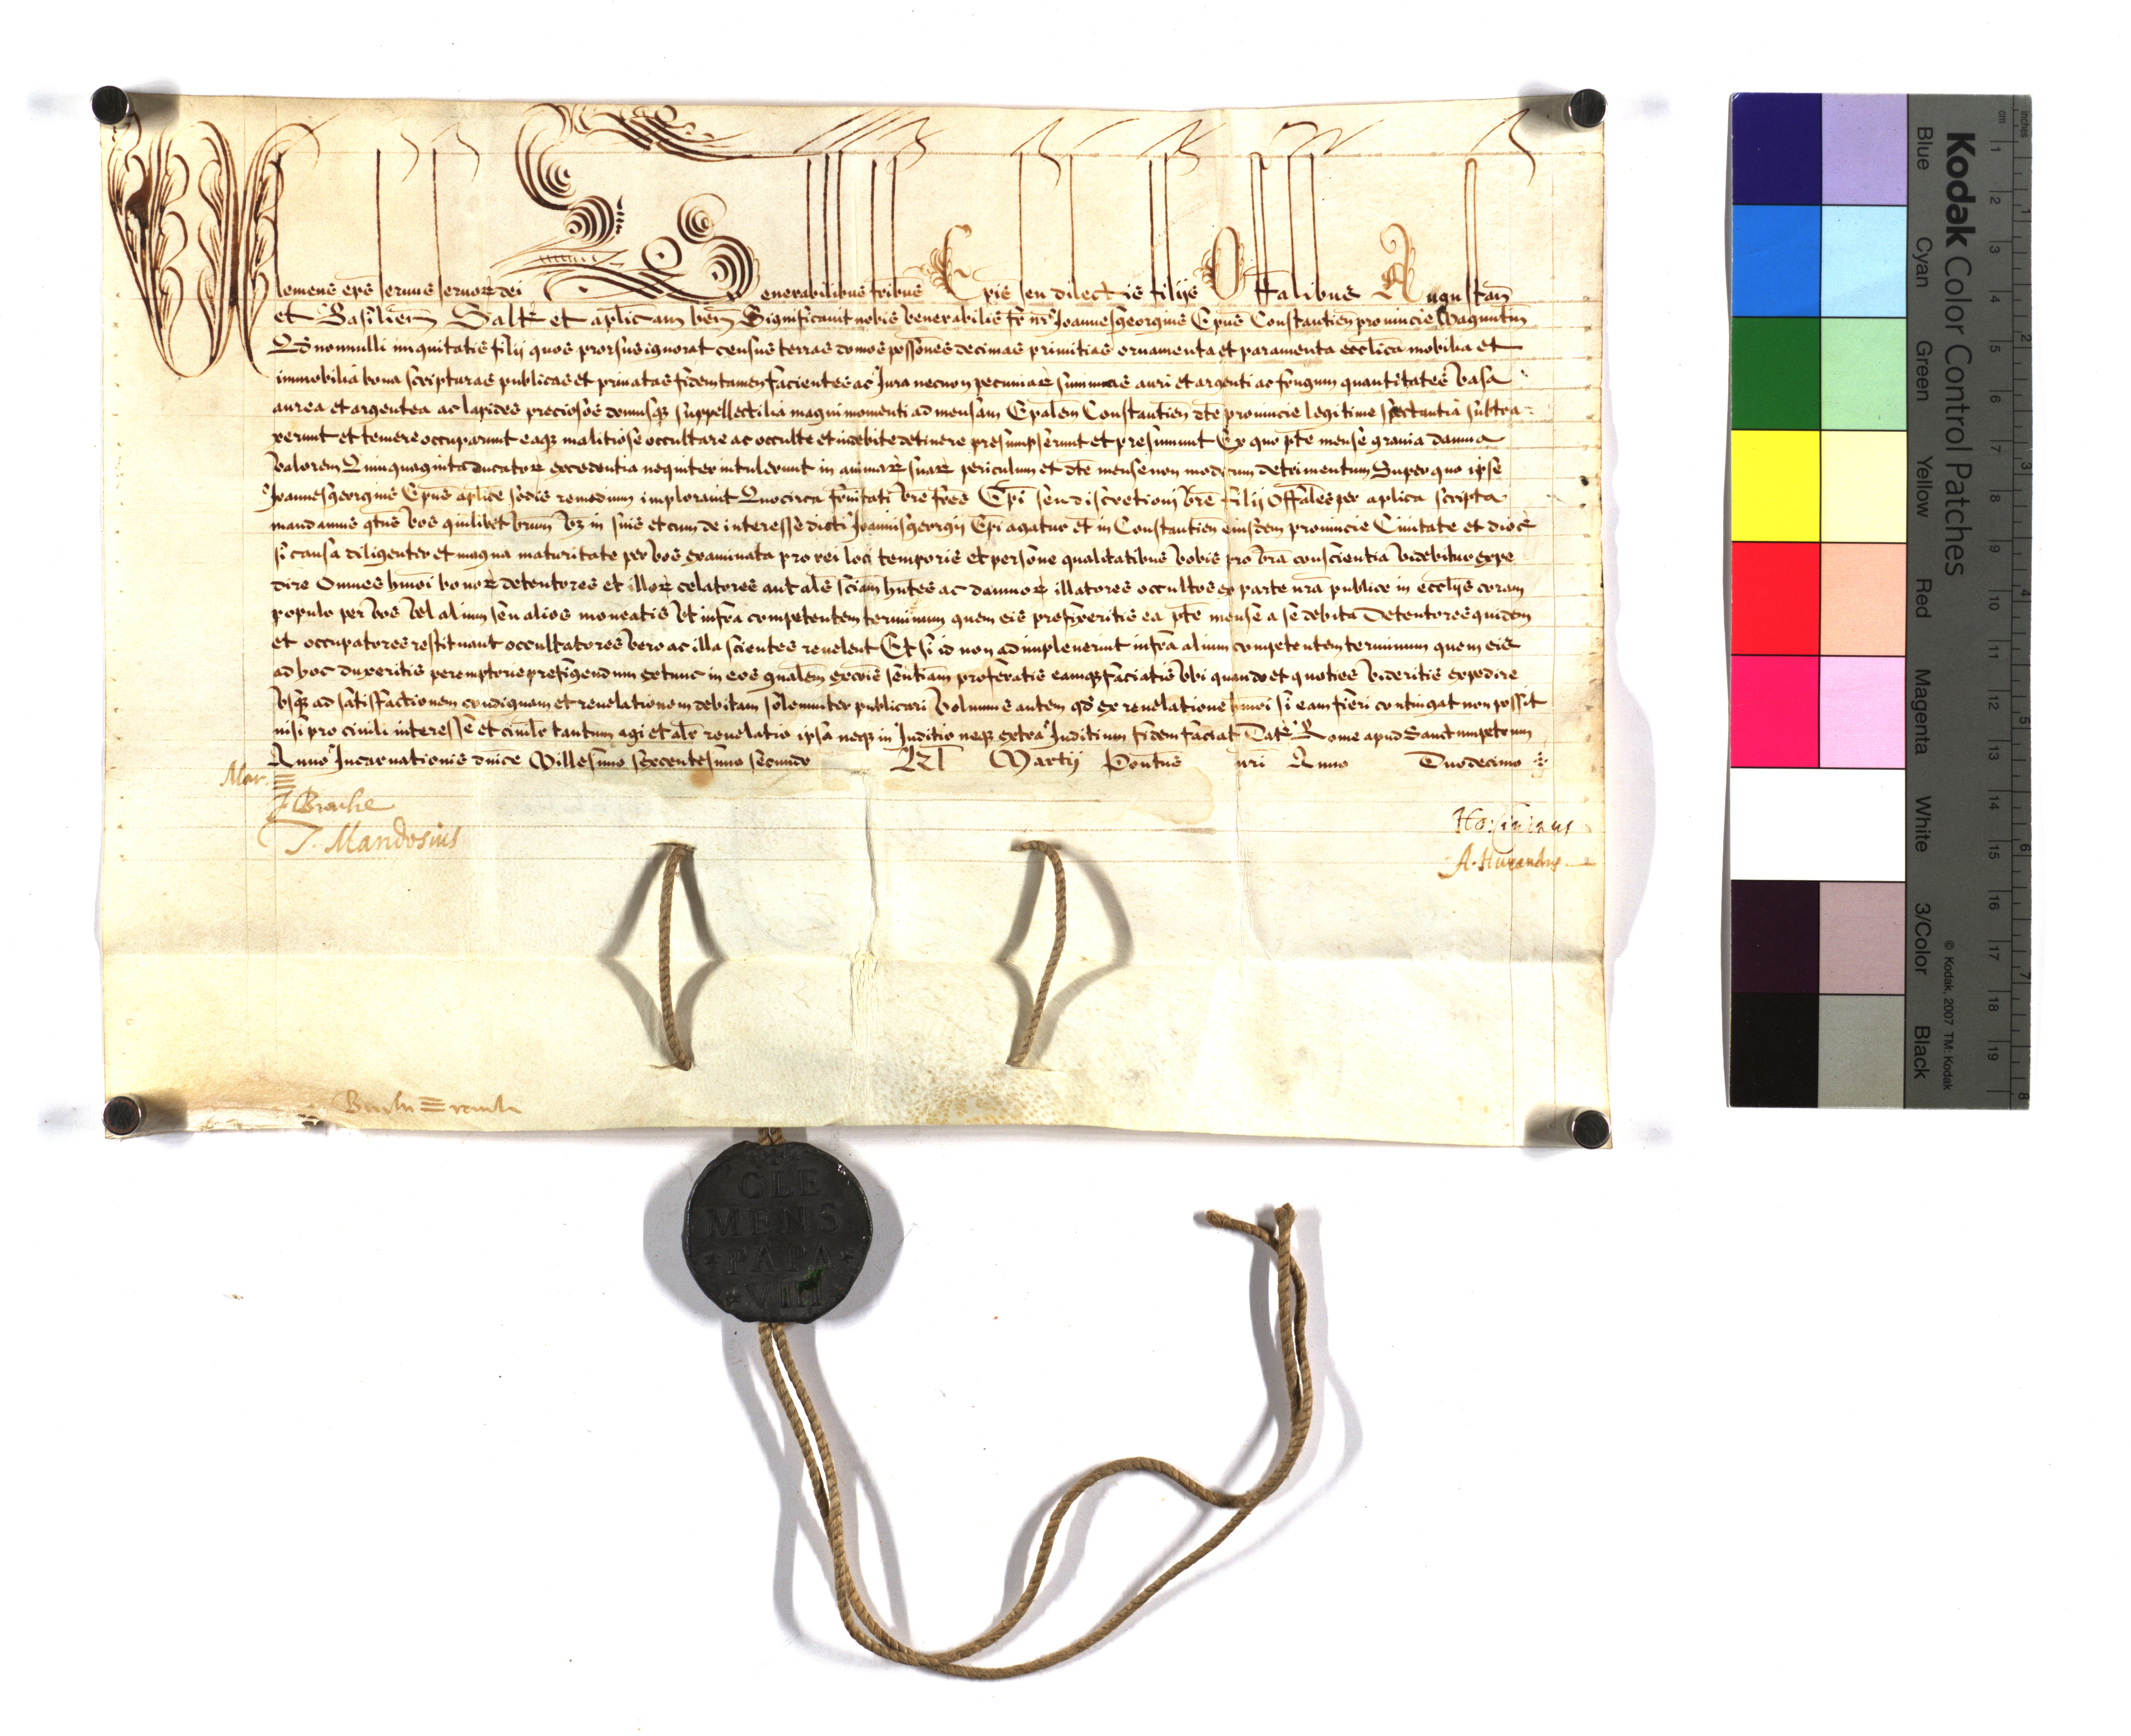 Clemens ep̄s seruus seruor dei Venerabilibus fribus Ep̄is seu dilectis filijs Offalibus Augustan̄
et Basilien̄ Salt̄ et ap̄licam ben̄ Significauit nobis Venerabilis fr̄ nr̄ Joannesgeorgius Ep̄us Constantien̄ prouincie Maguntin̄
Qd nonnulli iniquitatis filij quos prorsus ignorat census terras domos poss̄ones decimas primitias ornamenta et paramenta eccl̄ica mobilia et
immobilia bona scripturas publicas et priuatas fidem tamen facientes ac Jura necnon pecuniar̄ summas auri et argenti ac frugum quantitates Vasa
aurea et argentea ac lapides preciosos domusq̄ suppellectilia magni momenti ad mensam Ep̄alem Constantien̄ dt̄e prouincie legitime spectantia subtra=
xerunt et temere occuparunt eaq̄ malitiose occultare ac occulte et indebite detinere presumpserunt et presumunt Ex quo pt̄e mense grauia damna
Valorem Quinquaginta ducator̄ excedentia nequiter intulerunt in animar̄ suar̄ periculum et dt̄e mense non modicum detrimentum Super quo ipse
Joannesgeorgius Ep̄us ap̄lice sedis remedium implorauit Quocirca fr̄nitati Vr̄e fr̄es Ep̄i seu discretioni Vr̄e filij Offales per ap̄lica scripta
mandamus qt̄us Vos quilibet Vrum Vz in suis et cum de interesse dicti Joannisgeorgij Ep̄i agatur et in Constantien̄ eiusdem prouincie Ciuitate et dioc̄
si causa diligenter et magna maturitate per Vos examinata pro rei loci temporis et persone qualitatibus Vobis pro Vr̄a conscientia Videbitur expe
dire Omnes hmōi bonor̄ detentores et illor̄ celatores aut al̄s sciam hn̄tes ac damnor̄ illatores occultos ex parte nr̄a publice in eccl̄ijs coram
populo per Vos Vel alium seu alios moneatis Vt infra competentem terminum quem eis prefixeritis ea pt̄e mense a se debita Detentores quidem
et occupatores restituant occultatores Vero ac illa scientes reuelent Et si id non adimpleuerint infra alium competentem terminum quem eis
ad hoc duxeritis peremptorie prefigendum extunc in eos gn̄alem exc̄ois sentiam proferatis eamq̄ faciatis Vbi quando et quoties Videritis expedire
Vsq̄ ad satisfactionem condignam et reuelationem debitam solemniter publicari Volumus autem qd̄ ex reuelatione hmōi si eam fieri contingat non possit
nisi pro ciuili interesse et ciuilr̄ tantum agi et alr̄ reuelatio ipsa neq̄ in Juditio neq̄ extra Juditium fidem faciat Dat̄ Rome apud Sanctumpetrum
Anno Incarnationis dn̄ice Millesimo sexcentesimo secundo Kl̄ Martij Pontus̄ nr̄i Anno Duodecimo
Mar.
T. Mandosius
CLE
MENS
PAPA
VIII
Kodak Color Control Patches
Blue Cyan Green Yellow Red Magenta White 3/Color Black
© Kodak, 2007 TM: Kodak
cm 1 2 3 4 5 6 7 8 9 10 11 12 13 14 15 16 17 18 19
inches 1 2 3 4 5 6 7 8